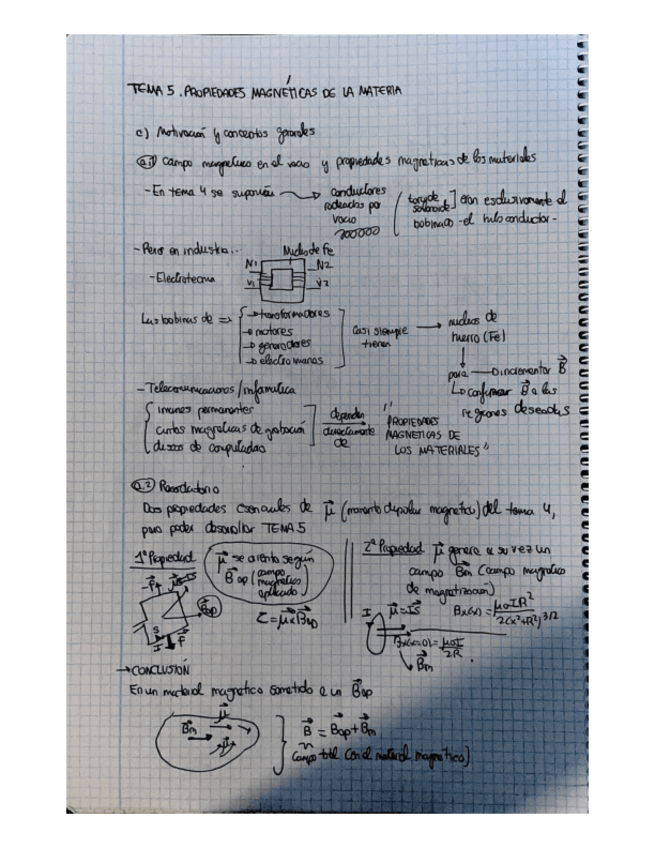 TEMA 5. PROPIEDADES MAGNÉTICAS DE LA MATERIA
a) Motivación y conceptos generales
a.1) Campo magnetico en el vacio y propiedades magneticas de los materiales
- En tema 4 se suponian → conductores rodeados por vacio ( toroide solenoide ] eran esclusivamente el bobinado - el hilo conductor -
- Pero en industria...
Nucleo de Fe
N1 N2
- Electrotecnia
V1 V2
Las bobinas de ⇒
→ transformadores
→ motores
→ generadores
→ electroimanes
casi siempre tienen → nucleos de hierro (Fe)
para → incrementar B⃗
↳ confinar B⃗ a las regiones deseadas
- Telecomunicaciones / informatica
imanes permanentes
cintas magneticas de grabación
discos de computadoras
dependen directamente de
"PROPIEDADES MAGNETICAS DE LOS MATERIALES"
a.2) Recordatorio
Dos propiedades esenciales de μ⃗ (momento dipolar magnetico) del tema 4,
para poder desarrollar TEMA 5
1ª Propiedad
μ⃗ se orienta según
B⃗ap (campo magnetico aplicado)
B⃗ap
S
I
F⃗
τ = μ⃗ x B⃗ap
2ª Propiedad μ⃗ genera a su vez un
campo B⃗m (campo magnetico
de magnetización)
I μ⃗ = IS⃗ Bx(x) = μ0IR²/2(x²+R²)^3/2
Bx(x=0) = μ0I/2R
↳ B⃗m
→ CONCLUSIÓN
En un material magnetico sometido a un B⃗ap
μ⃗
B⃗m
B⃗ = B⃗ap + B⃗m
Campo total (con el material magnetico)